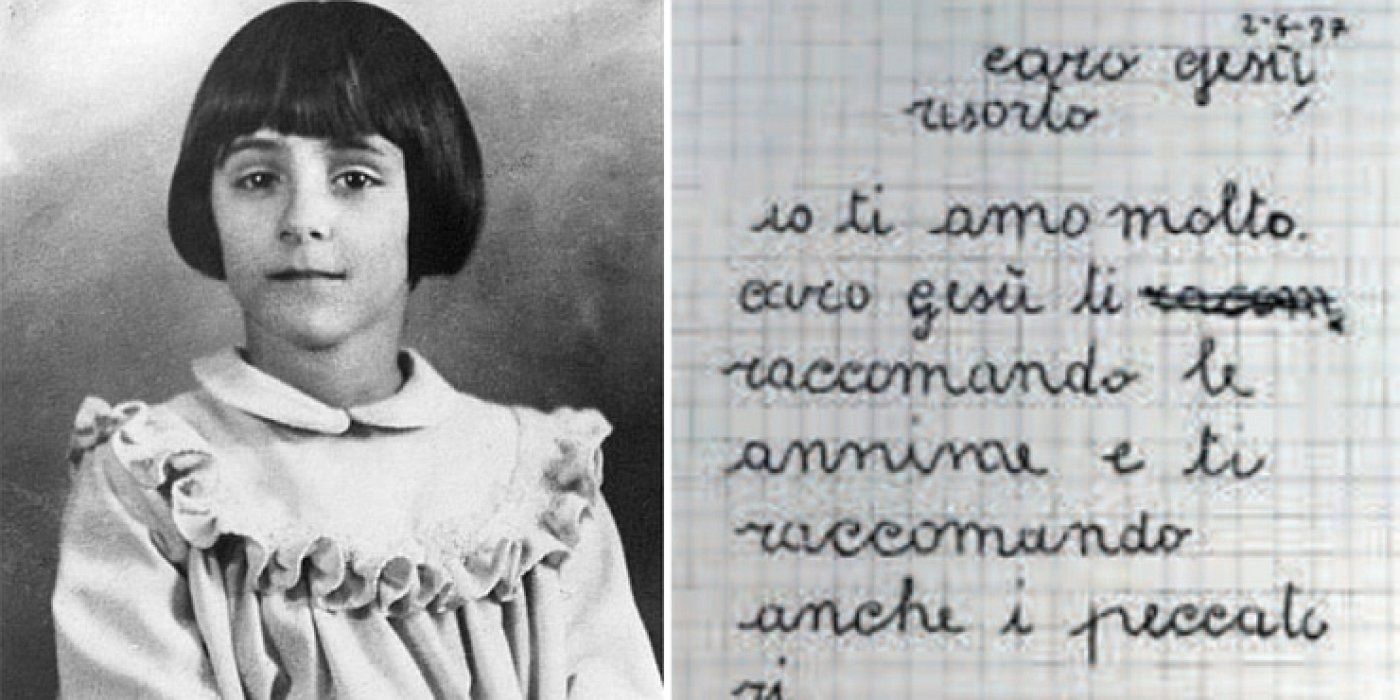 2-4-37
caro gesù
risorto
io ti amo molto.
caro gesù ti
raccomando le
annime e ti
raccomando
anche i peccato
ri